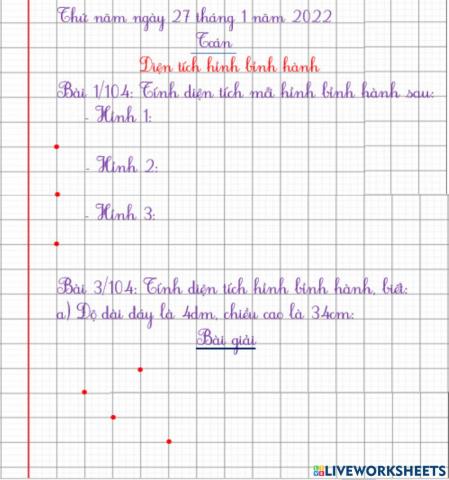 Thứ năm ngày 27 tháng 1 năm 2022
Toán
Diện tích hình bình hành
Bài 1/104: Tính diện tích mỗi hình bình hành sau:
- Hình 1:
- Hình 2:
- Hình 3:
Bài 3/104: Tính diện tích hình bình hành, biết:
a) Độ dài đáy là 4dm, chiều cao là 34cm:
Bài giải
LIVEWORKSHEETS